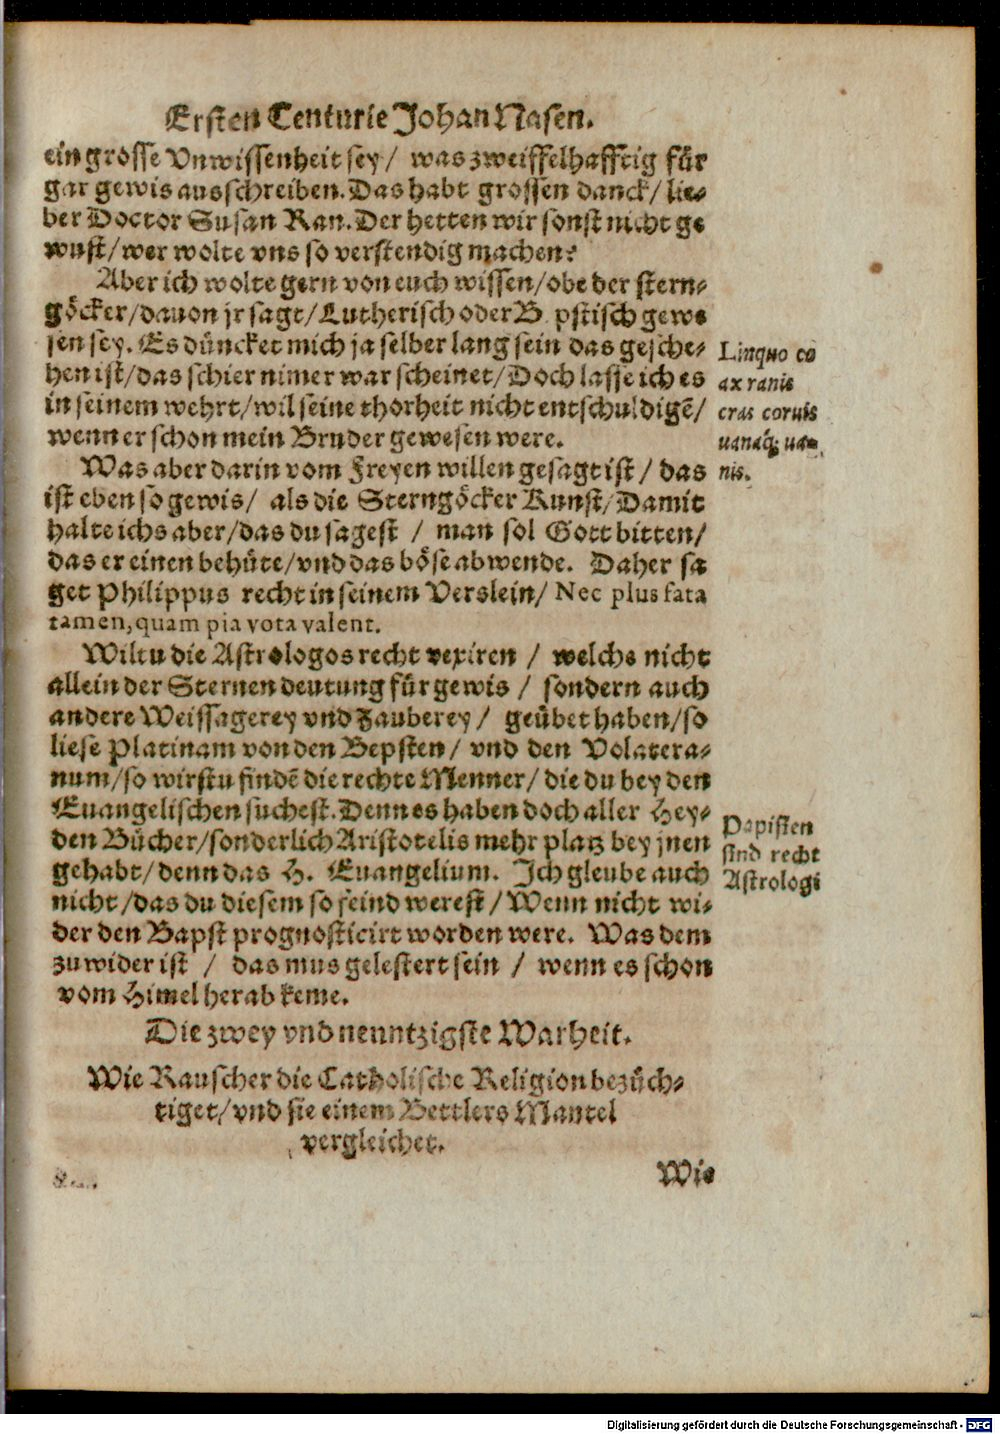 Ersten Centurie Johan Nasen.
ein grosse Vnwissenheit sey/ was zweiffelhafftig für
gar gewis ausschreiben. Das habt grossen danck/ lie-
ber Doctor Susan Ran. Der hetten wir sonst nicht ge
wust/ wer wolte vns so verstendig machen?
Aber ich wolte gern von euch wissen/ obe der stern-
göcker/ dauon jr sagt/ Lutherisch oder B pstisch gewe
sen sey. Es düncket mich ja selber lang sein das gesche-
hen ist/ das schier nimer war scheinet/ Doch lasse ich es
in seinem wehrt/ wil seine thorheit nicht entschuldigē/
wenn er schon mein Bruder gewesen were.
Linquo co
ax ranis
cras coruis
uanáq; ua-
nis.
Was aber darin vom Freyen willen gesagt ist/ das
ist eben so gewis/ als die Sterngöcker Kunst/ Damit
halte ichs aber/ das du sagest / man sol Gott bitten/
das er einen behüte/ vnd das böse abwende. Daher sa
get Philippus recht in seinem Verslein/ Nec plus fata
tamen, quam pia vota valent.
Wiltu die Astrologos recht vexiren / welche nicht
allein der Sternen deutung für gewis / sondern auch
andere Weissagerey vnd Zauberey/ geübet haben/ so
liese Platinam von den Bepsten/ vnd den Volatera-
num/ so wirstu findē die rechte Menner/ die du bey den
Euangelischen suchest. Denn es haben doch aller Hey-
den Bücher/ sonderlich Aristotelis mehr platz bey jnen
gehabt/ denn das H. Euangelium. Ich gleube auch
nicht/ das du diesem so feind werest/ Wenn nicht wi-
der den Bapst prognosticirt worden were. Was dem
zu wider ist / das mus gelestert sein / wenn es schon
vom Himel herab keme.
Papisten
sind recht
Astrologi
Die zwey vnd nenntzigste Warheit.
Wie Rauscher die Catholische Religion bezüch-
tiget/ vnd sie einem Bettlers Mantel
vergleichet.
Wie
Digitalisierung gefördert durch die Deutsche Forschungsgemeinschaft - DFG